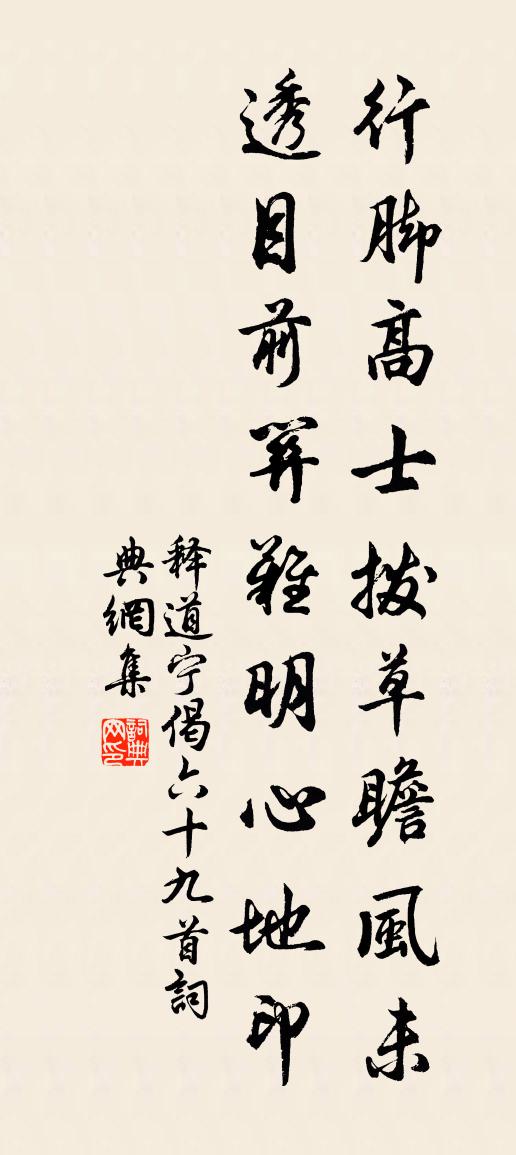 行脚高士拨草瞻風未
透目前難明心地印
释道宁偈六十九首詞
典網集
詞典网印